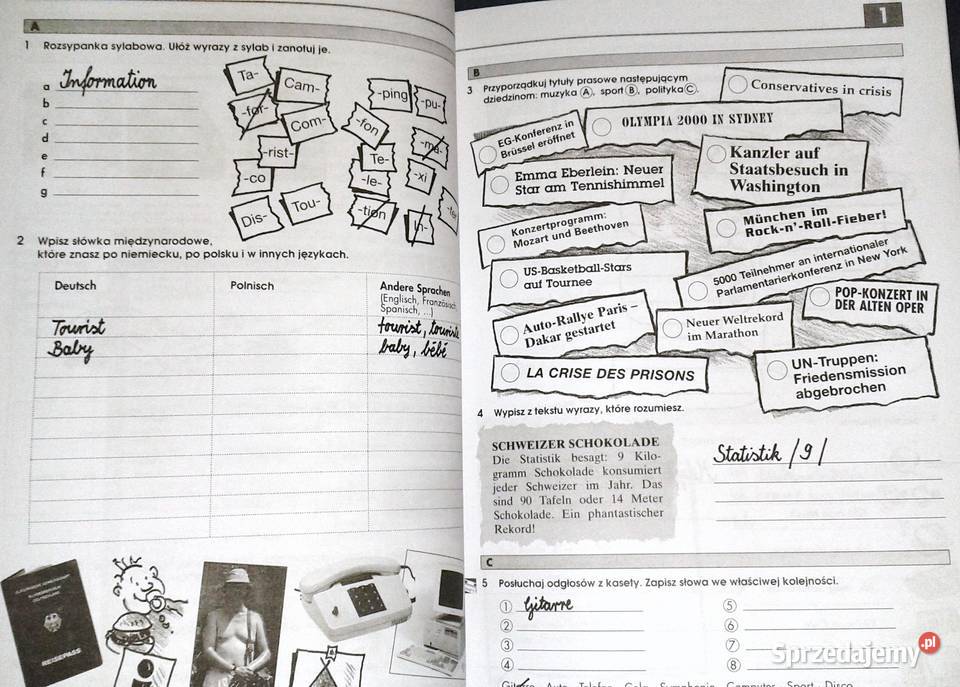 A
1 Rozsypanka sylabowa. Ułóż wyrazy z sylab i zanotuj je.
a Information
b
c
d
e
f
g
Ta-
Cam-
-ping
-pu-
-for-
Com-
-fon
-ma-
-rist-
Te-
-xi
-co
-le-
Dis-
Tou-
-tion
In-
-ter
2 Wpisz słówka międzynarodowe,
które znasz po niemiecku, po polsku i w innych językach.
Deutsch
Polnisch
Andere Sprachen
(Englisch, Französisch
Spanisch, ...)
Tourist
tourist, touriste
Baby
baby, bébé
REISEPASS
1
B
3 Przyporządkuj tytuły prasowe następującym
dziedzinom: muzyka A, sport B, polityka C.
Conservatives in crisis
EG-Konferenz in
Brüssel eröffnet
OLYMPIA 2000 IN SYDNEY
Emma Eberlein: Neuer
Star am Tennishimmel
Kanzler auf
Staatsbesuch in
Washington
Konzertprogramm:
Mozart und Beethoven
München im
Rock-n'-Roll-Fieber!
US-Basketball-Stars
auf Tournee
5000 Teilnehmer an internationaler
Parlamentarierkonferenz in New York
Auto-Rallye Paris –
Dakar gestartet
Neuer Weltrekord
im Marathon
POP-KONZERT IN
DER ALTEN OPER
LA CRISE DES PRISONS
UN-Truppen:
Friedensmission
abgebrochen
4 Wypisz z tekstu wyrazy, które rozumiesz.
SCHWEIZER SCHOKOLADE
Die Statistik besagt: 9 Kilo-
gramm Schokolade konsumiert
jeder Schweizer im Jahr. Das
sind 90 Tafeln oder 14 Meter
Schokolade. Ein phantastischer
Rekord!
Statistik /9/
C
5 Posłuchaj odgłosów z kasety. Zapisz słowa we właściwej kolejności.
1 Gitarre
2
3
4
5
6
7
8
Gitarre Auto Telefon Cola Symphonie Computer Sport Disco
Sprzedajemy.pl